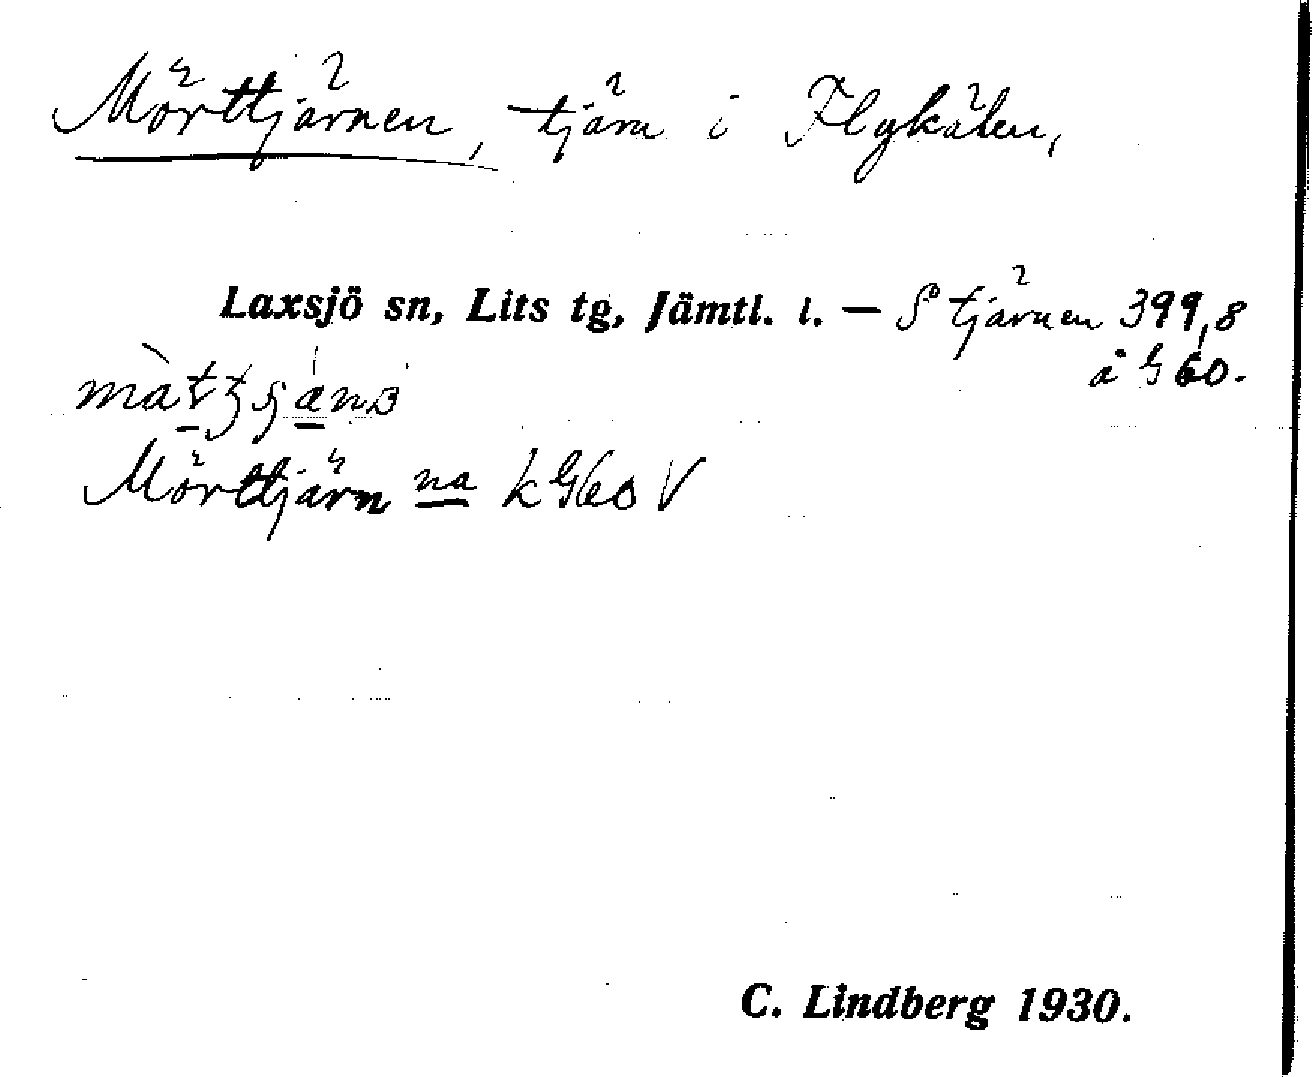 Mörttjärnen, tjärn i Flykälen,
Laxsjö sn, Lits tg, Jämtl. l. — S° tjärnen 399,8
å G 60.
Mörttjärn na k G60 V
C. Lindberg 1930.